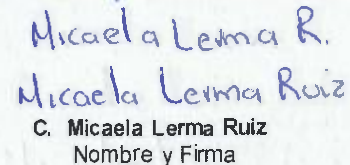 Micaela Lerma R.
Micaela Lerma Ruiz
C. Micaela Lerma Ruiz
Nombre y Firma